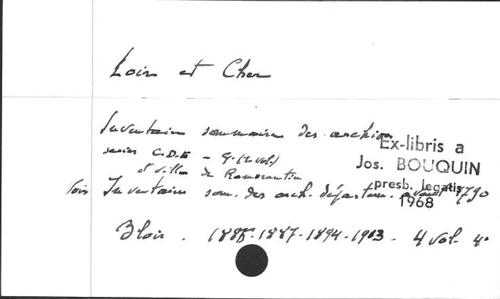 Loir et Cher
Inventaire sommaire des archives
series C.D.E - G. (2 vol.)
et villes de Romorantin
Ex-libris a
Jos. BOUQUIN
presb. legatis
1968
Inventaire som. des arch. départem. avant 1790
Blois. 1888-1887-1894-1903 - 4 vol. 4°